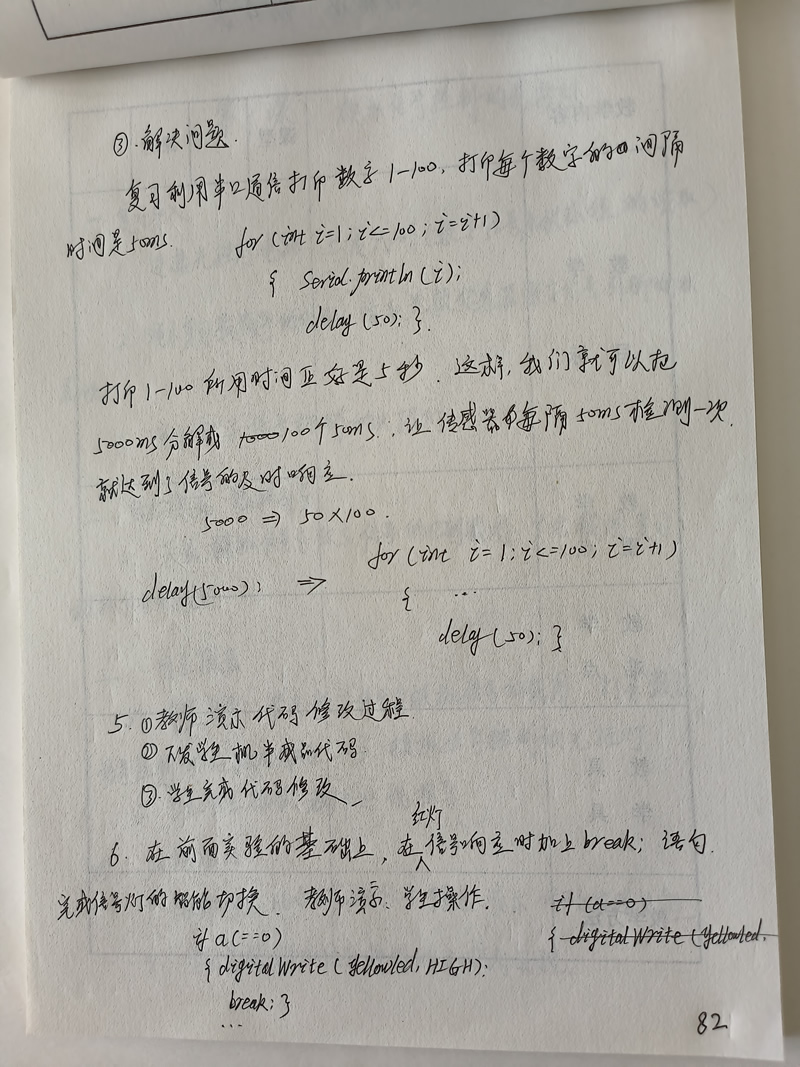 ③.解决问题.
复习利用串口通信打印数字1-100,打印每个数字的间隔
时间是50ms.  for (int i=1;i<=100;i=i+1)
{ Serial.println(i);
delay(50);}.
打印1-100所用时间正好是5秒.这样,我们就可以把
5000ms分解成 100个50ms.,让传感器每隔50ms检测一次.
就达到了信号的及时响应.
5000 ⇒ 50×100.
for (int i=1;i<=100;i=i+1)
delay(5000); ⇒ { ...
delay(50);}
5.①教师演示代码修改过程
②下发学生机半成品代码.
③.学生完成代码修改
红灯
6. 在前面实验的基础上,在信号响应时加上break;语句.
完成信号灯的智能切换. 教师演示、学生操作. if (a==0)
if a(==0) { digitalWrite (Yellowled,
{ digitalWrite (Yellowled,HIGH);
break;}
...
82